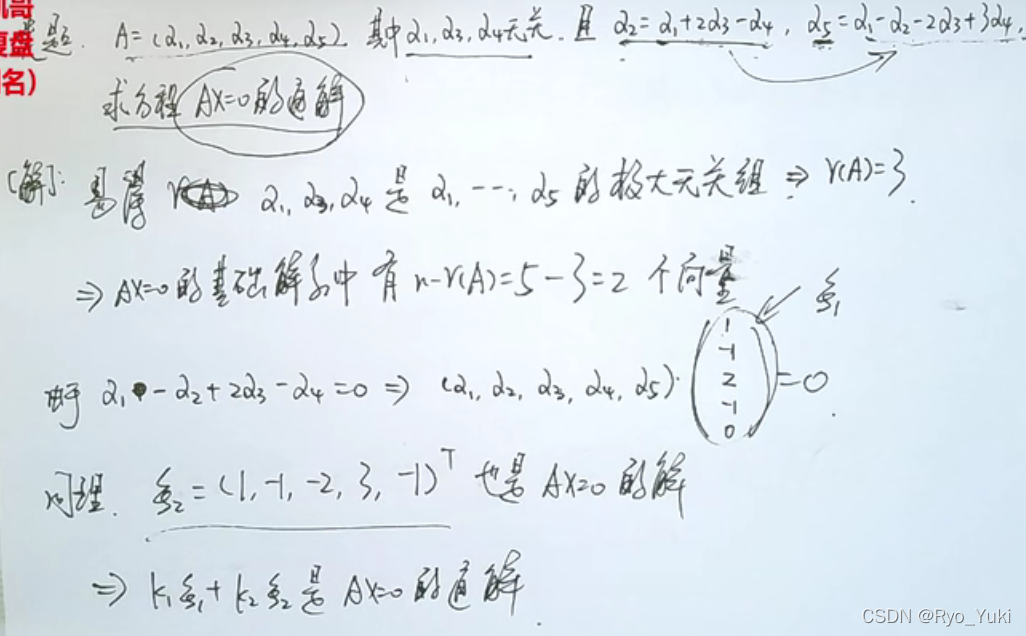 凯哥
复盘
名)
题. A=(α₁,α₂,α₃,α₄,α₅) 其中α₁,α₃,α₄无关. 且 α₂=α₁+2α₃-α₄, α₅=α₁-α₂-2α₃+3α₄,
求方程 AX=0的通解
[解]: 易得 α₁,α₃,α₄是 α₁,…,α₅的极大无关组 ⇒ r(A)=3.
⇒ AX=0的基础解系中有 n-r(A)=5-3=2 个向量
由于 α₁-α₂+2α₃-α₄=0 ⇒ (α₁,α₂,α₃,α₄,α₅)·(1 -1 2 -1 0)=0. ξ₁
同理. ξ₂=(1,-1,-2,3,-1)ᵀ 也是 AX=0的解
⇒ k₁ξ₁+k₂ξ₂是 AX=0的通解.
CSDN @Ryo_Yuki